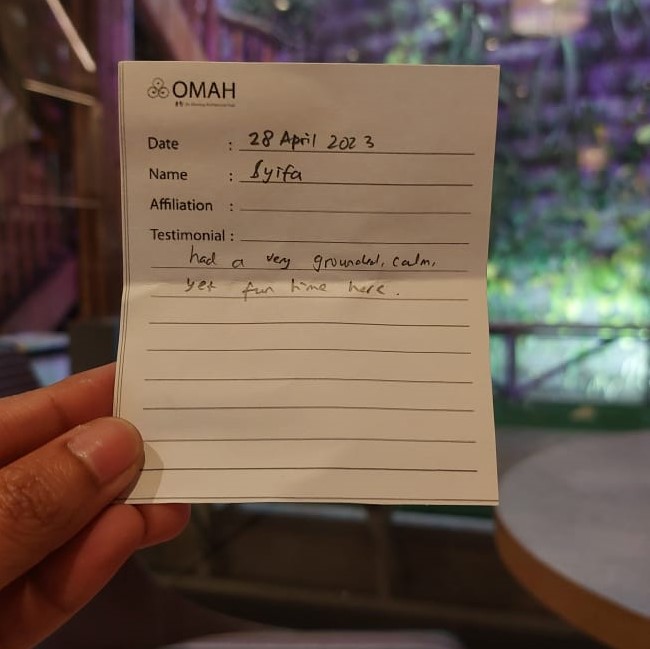 OMAH
Date : 28 April 2023
Name : Syifa
Affiliation :
Testimonial :
had a very grounded, calm,
yet fun time here.